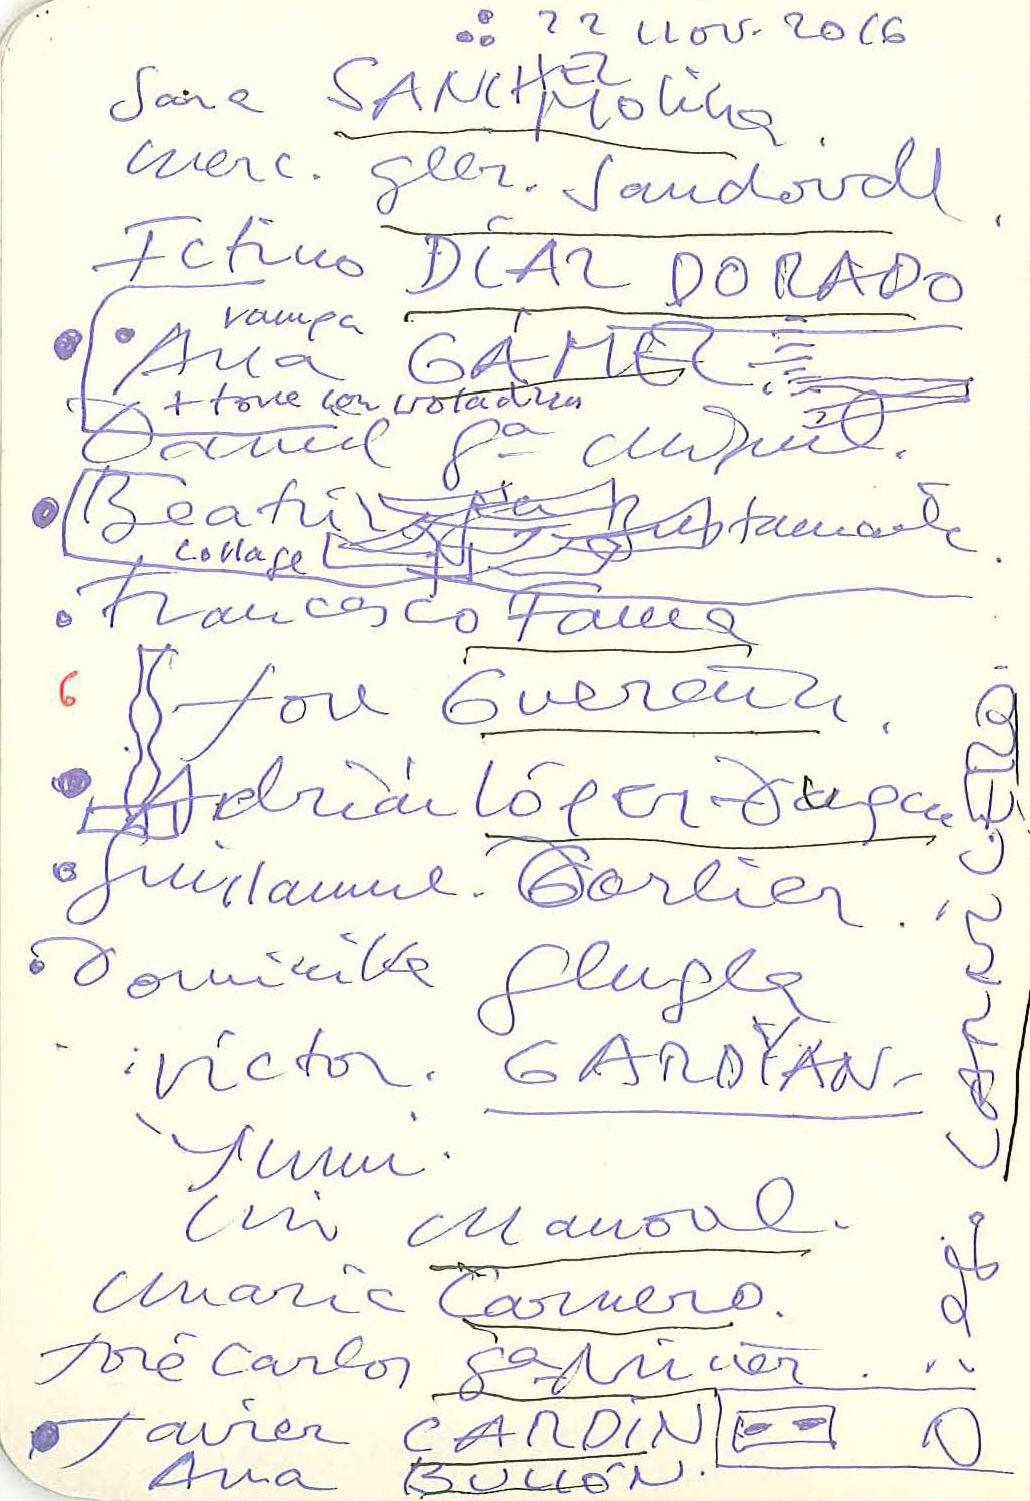 22 Nov. 2016
Sara SANCHEZ Molina.
Merc. Glez. Sandoval.
Ictino DÍAZ DORADO
rampa
Ana GÁMEZ
+ torre con rotadura
Daniel Gª
Beatriz Bustamante.
collage
Francesco Fama
6 Jose
Adrián López
Guillaume. Borlier.
Dominika Glugla
Victor. GARDYAN-
Yumi.
Luis Manoval.
Maria Carnero.
José Carlos gª Núñez.
Javier CARDÍN
Ana BULLÓN.